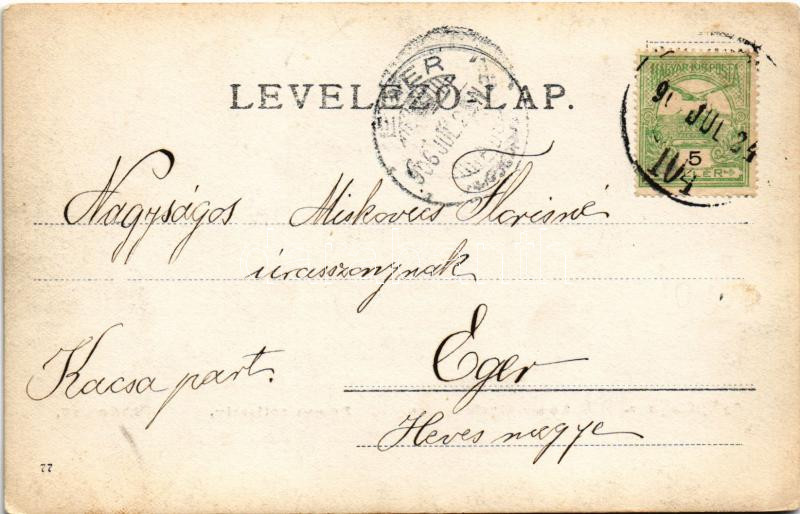 LEVELEZŐ-LAP.
EGER
906 JUL 2
MAGYAR KIR. POSTA
906 JUL 24
5
Nagyságos Miskovics Florisné
úrasszonynak
Kacsa part.
Eger
Heves megye
77